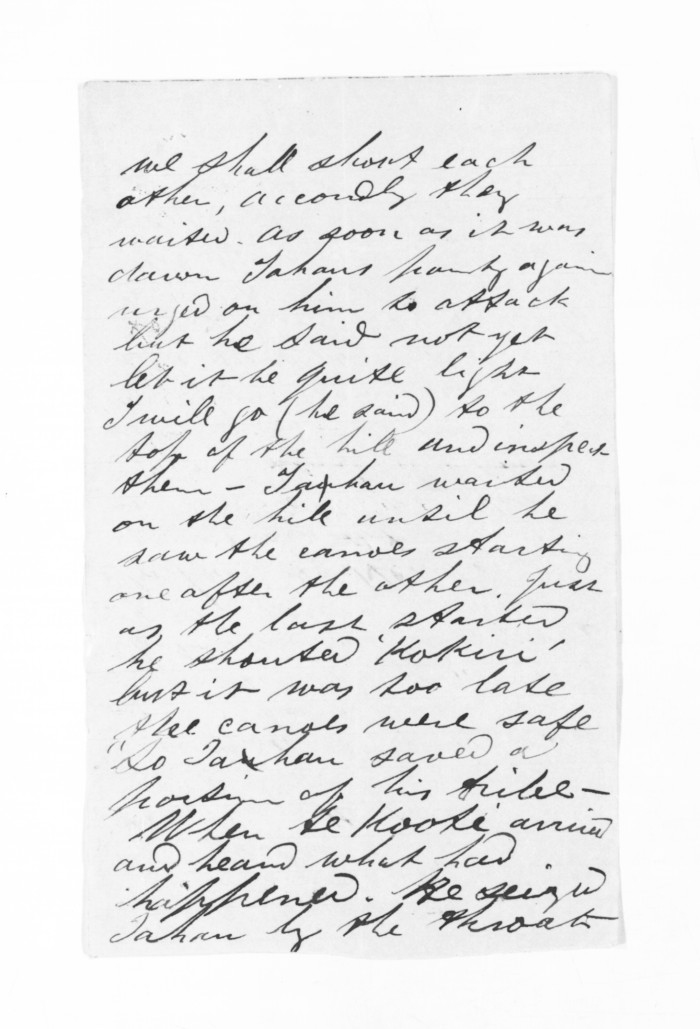 we shall shout each
other, accordly they
waited. As soon as it was
dawn Tahaus party again
urged on him to attack
but he said not yet
let it be quite light
I will go (he said) to the
top of the hill and inspect
them – Tahau waited
on the hill until he
saw the canoes starting
one after the other. Just
as the last started
he shouted 'Kokiri'
but it was too late
the canoes were safe
"So Tahau saved a
portion of his tribe –
When Te Kooti arrived
and heard what had
happened. He seized
Tahau by the throat